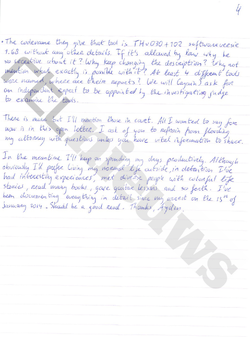 4
• The codename they give that tool is IH-010+102 software version
1.62 without any other details. If it's allowed by law why be
so secretive about it? Why keep changing the description? Why not
mention what exactly is possible with it? At least 4 different tools
were named, where are their experts? We will ask for
an independent expert to be appointed by the investigating judge
to examine the tools.
There is much but I'll mention those in court. All I wanted to say for
now is in this letter. I ask of you to refrain from
my attorney with questions unless you have vital information to share.
In the meantime I'll keep on spending my days productively. Although
obviously I'd prefer living my normal life outside, in detention I've
had interesting experiences, met diverse people with colorful life
stories, read many books, gave lessons and so forth. I've
been documenting everything in detail since my arrest on the 15th of
January. Should be a good read. Thanks,